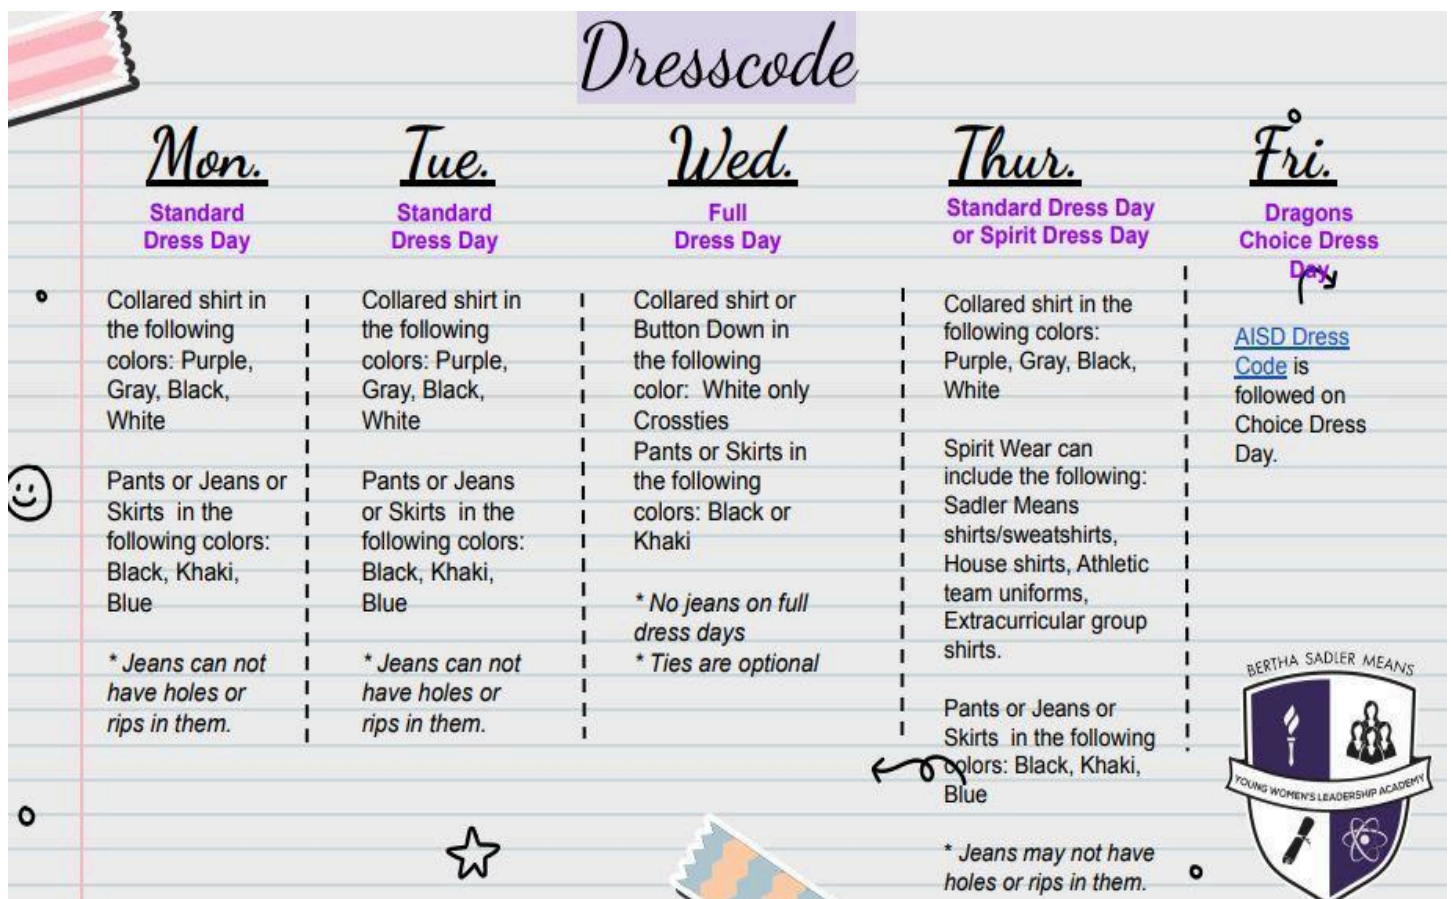 Dresscode
Mon.
Standard
Dress Day
Collared shirt in
the following
colors: Purple,
Gray, Black,
White
Pants or Jeans or
Skirts in the
following colors:
Black, Khaki,
Blue
* Jeans can not
have holes or
rips in them.
Tue.
Standard
Dress Day
Collared shirt in
the following
colors: Purple,
Gray, Black,
White
Pants or Jeans
or Skirts in the
following colors:
Black, Khaki,
Blue
* Jeans can not
have holes or
rips in them.
Wed.
Full
Dress Day
Collared shirt or
Button Down in
the following
color: White only
Crossties
Pants or Skirts in
the following
colors: Black or
Khaki
* No jeans on full
dress days
* Ties are optional
Thur.
Standard Dress Day
or Spirit Dress Day
Collared shirt in the
following colors:
Purple, Gray, Black,
White
Spirit Wear can
include the following:
Sadler Means
shirts/sweatshirts,
House shirts, Athletic
team uniforms,
Extracurricular group
shirts.
Pants or Jeans or
Skirts in the following
colors: Black, Khaki,
Blue
* Jeans may not have
holes or rips in them.
Fri.
Dragons
Choice Dress
Day
AISD Dress
Code is
followed on
Choice Dress
Day.
BERTHA SADLER MEANS
YOUNG WOMEN'S LEADERSHIP ACADEMY